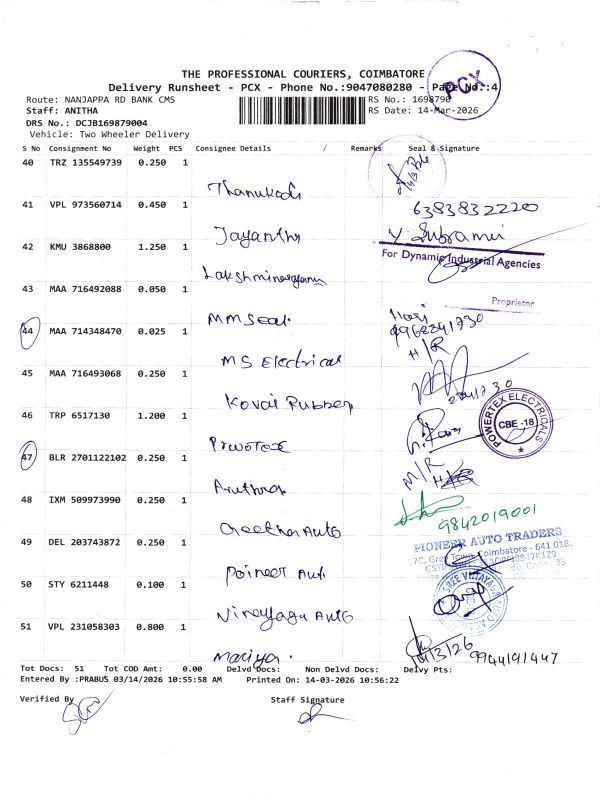 THE PROFESSIONAL COURIERS, COIMBATORE
Delivery Runsheet - PCX - Phone No.:9047080280 - Page No.:4
PCX
Route: NANJAPPA RD BANK CMS
RS No.: 1698790
Staff: ANITHA
RS Date: 14-Mar-2026
DRS No.: DCJB169879004
Vehicle: Two Wheeler Delivery
S No Consignment No Weight PCS Consignee Details / Remarks Seal & Signature
40 TRZ 135549739 0.250 1
Thanukodi
41 VPL 973560714 0.450 1
6383832220
Jayanthi
42 KMU 3868800 1.250 1
For Dynamic Industrial Agencies
Lakshminarayana
43 MAA 716492088 0.050 1
Proprietor
MM Seal
Hari
44 MAA 714348470 0.025 1
H/R
MS Electrical
45 MAA 716493068 0.250 1
Kovai Rubber
46 TRP 6517130 1.200 1
POWERTEX ELECTRICALS
CBE -18
47 BLR 2701122102 0.250 1
M/R
48 IXM 509973990 0.250 1
9842019001
Geetha Auto
49 DEL 203743872 0.250 1
PIONEER AUTO TRADERS
Coimbatore - 641 018.
Poineer Aut.
50 STY 6211448 0.100 1
SREE VINAYAGA
Vinayaga Auto
51 VPL 231058303 0.800 1
14/3/26 9944191447
Mariya.
Tot Docs: 51 Tot COD Amt: 0.00 Delvd Docs: Non Delvd Docs: Delvy Pts:
Entered By :PRABUS 03/14/2026 10:55:58 AM Printed On: 14-03-2026 10:56:22
Verified By
Staff Signature